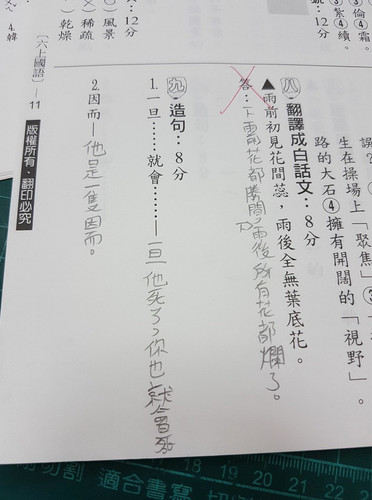 ③倫④霜。
③紮④續。
12分
）風景
）稀疏
）乾燥
4.韓
生在操場上「聚焦」③
路的大石④擁有開闊的「視野」。
八、翻譯成白話文：8分
▲雨前初見花間蕊，雨後全無葉底花。
答：下雨前花都勝開了，雨後所有花都爛了。
九、造句：8分
1.一旦……就會……—一旦他死了，你也就會
2.因而—他是一隻因而。
〔六上國語〕—11
版權所有‧翻印必究
切割 適合書寫